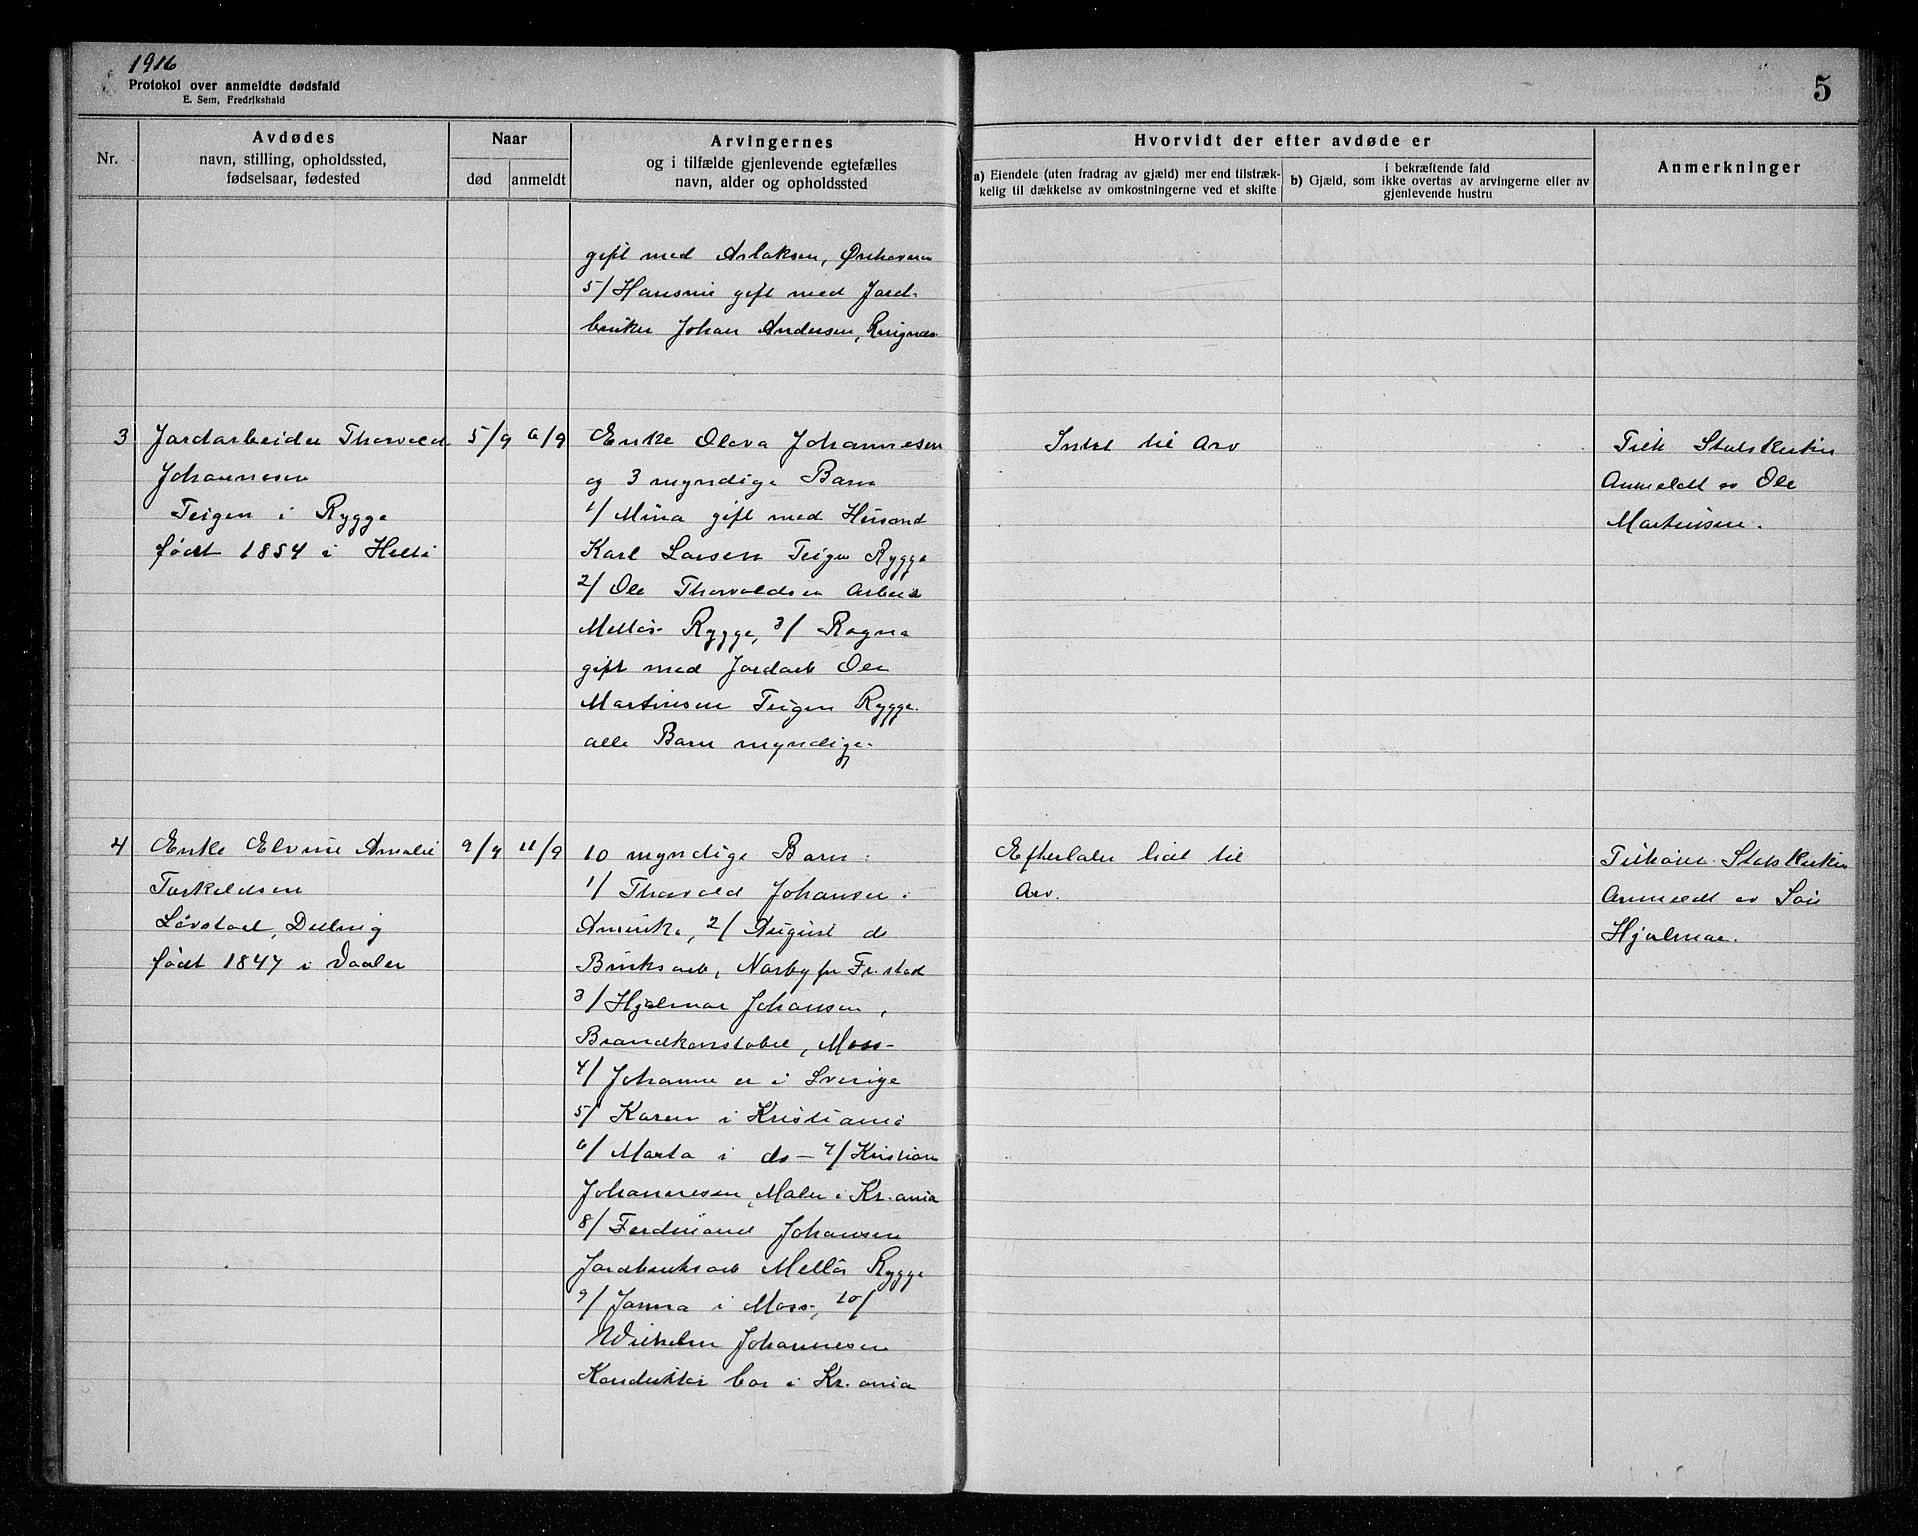 1916
Protokol over anmeldte dødsfald
E. Sem, Fredrikshald
5
Nr.
Avdødes
navn, stilling, opholdssted,
fødselsaar, fødested
Naar
død
anmeldt
Arvingernes
og i tilfælde gjenlevende egtefælles
navn, alder og opholdssted
Hvorvidt der efter avdøde er
a) Eiendele (uten fradrag av gjæld) mer end tilstræk-
kelig til dækkelse av omkostningerne ved et skifte
i bekræftende fald
b) Gjæld, som ikke overtas av arvingerne eller av
gjenlevende hustru
Anmerkninger
gift med Aslaksen,
5/ Hansine gift med Jord-
bruker Johan Andersen,
3
Jordarbeider Thorvald
Johannesen
Teigen i Rygge
født 1854 i
5/9
6/9
Enke Olava Johannesen
og 3 myndige Barn
1/ Mina gift med Husmand
Karl Larsen Teigen Rygge
2/ Ole Thorvaldsen Arbeid
Melløs Rygge, 3/ Ragna
gift med Jordarb Ole
Martinsen Teigen Rygge.
alle Barn myndige.
Intet til Arv
Tilh Statskirken
Anmeldt av Ole
Martinsen.
4
Enke Elvine Amalie
Torkeldsen
Løvstad, Dilling
født 1847 i Vaaler
9/9
11/9
10 myndige Barn:
1/ Thorvald Johansen i
Amerika, 2/ August do
Bruksarb, Narby pr Fr.stad
3/ Hjalmar Johansen,
Brandkonstabel, Moss
4/ Johanne er i Sverige
5/ Karen i Kristiania
6/ Marta i do – 7/ Kristian
Johannesen, Maler i Kr.ania
8/ Ferdinand Johansen
Jordbruksarb Melløs Rygge
9/ Janna i Moss, 10/
Wilhelm Johannesen
Konduktør bor i Kr.ania
Efterlater lidt til
Arv.
Tilhører Statskirken
Anmeldt av Søn
Hjalmar.